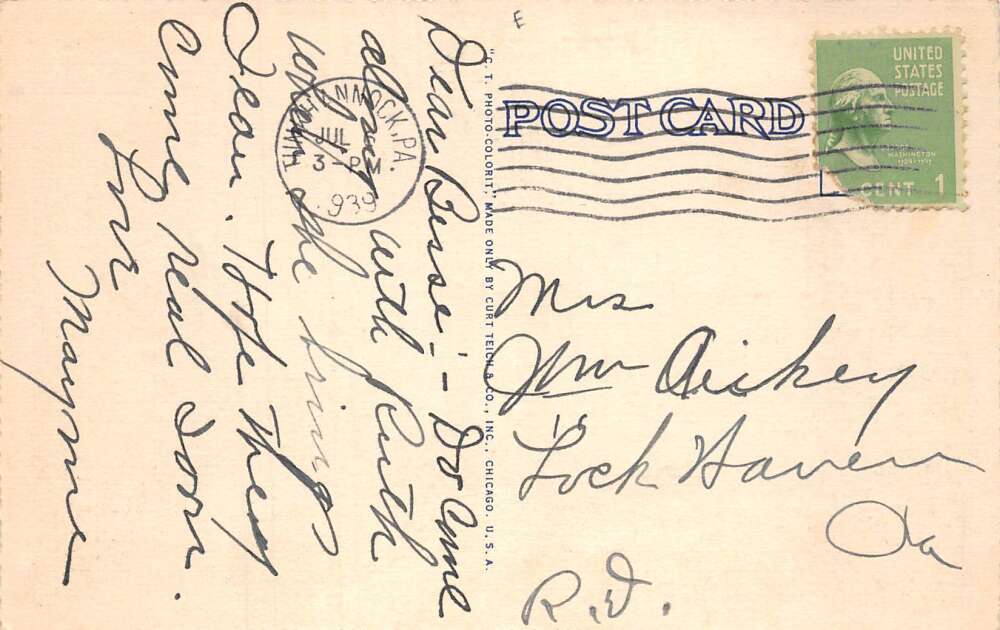 Dear Besse:- Do Come
down with Ruth
when she brings
Dean. Hope they
Come real soon.
Love
Mayme
"C.T. PHOTO-COLORIT," MADE ONLY BY CURT TEICH & CO., INC., CHICAGO, U.S.A.
E
POST CARD
NNOCK, PA.
JUL
3-PM
1939
UNITED
STATES
POSTAGE
WASHINGTON
CENT 1
Mrs
Wm Aickey
Lock Haven
Pa
R.D.